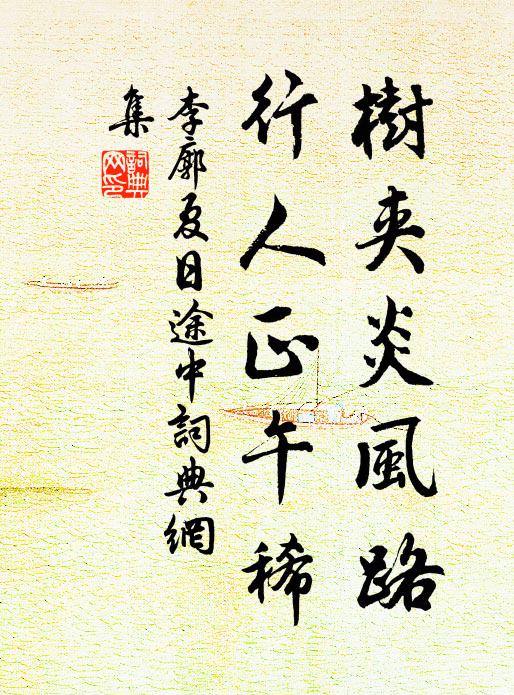 樹夾炎風路
行人正午稀
李廓夏日途中詞典網
集
詞典
网印